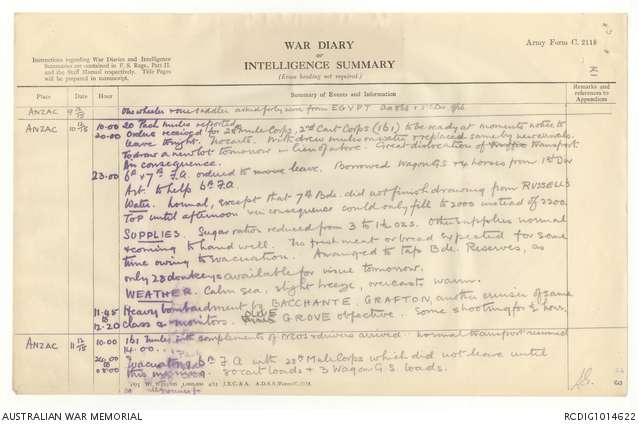 WAR DIARY
or
INTELLIGENCE SUMMARY
(Erase heading not required.)
Army Form C. 2118
Instructions regarding War Diaries and Intelligence
Summaries are contained in F. S. Regs., Part II.
and the Staff Manual respectively. Title Pages
will be prepared in manuscript.
Place Date Hour Summary of Events and Information Remarks and references to Appendices
ANZAC 9 12/15 One wheeler & one saddler arrived from EGYPT
ANZAC 10 12/15 10.00 20 Pack mules reported
20.00 Orders received for 2nd Mule Corps, 2nd Cart Corps (161) to be ready at moments notice to
leave tonight. No carts. Withdrew mules on water & replaced same by new animals.
To draw a new lot tomorrow in lieu of above. Great dislocation of transport
in consequence.
23.00 6th & 7th F.A. ordered to move leave. Borrowed Wagons GS & 4 horses from 1st Div
Art. to help 6th F.A.
Water. Normal, except that 7th Bde. did not finish drawing from RUSSELLS
TOP until afternoon & in consequence could only fill to 2000 instead of 2200.
SUPPLIES. Sugar ration reduced from 3 to 1½ ozs. Other supplies normal
& coming to hand well. No fresh meat or bread expected for some
time owing to evacuation. Arranged to tap Bde. Reserves, as
only 28 donkeys available for issue tomorrow.
WEATHER. Calm sea, slight breeze, overcast & warm.
11.45 Heavy bombardment by BACCHANTE, GRAFTON, another cruiser of same
to
12.20 class & monitors. OLIVE GROVE objective. Some shooting for ½ hour.
ANZAC 11 12/15 10.00 161 mules with complements of NCOs & drivers arrived. Normal transport resumed
14.00.
24.00 Evacuated 6th F.A. with 20th Mule Corps which did not leave until
to
05.00 this morning. 30 cart loads & 3 Wagon G.S loads.
AUSTRALIAN WAR MEMORIAL
RCDIG1014622